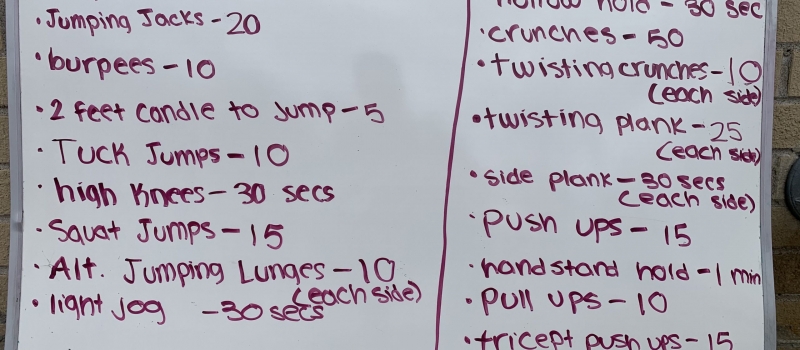 • Jumping Jacks - 20
• burpees - 10
• 2 feet candle to Jump - 5
• Tuck Jumps - 10
• high Knees - 30 secs
• Squat Jumps - 15
• Alt. Jumping Lunges - 10
(each side)
• light jog - 30 secs
hollow hold - 30 sec
• crunches - 50
• twisting crunches - 10
(each side)
• twisting plank - 25
(each side)
• side plank - 30 secs
(each side)
• push ups - 15
• handstand hold - 1 min
• Pull ups - 10
• tricept push ups - 15